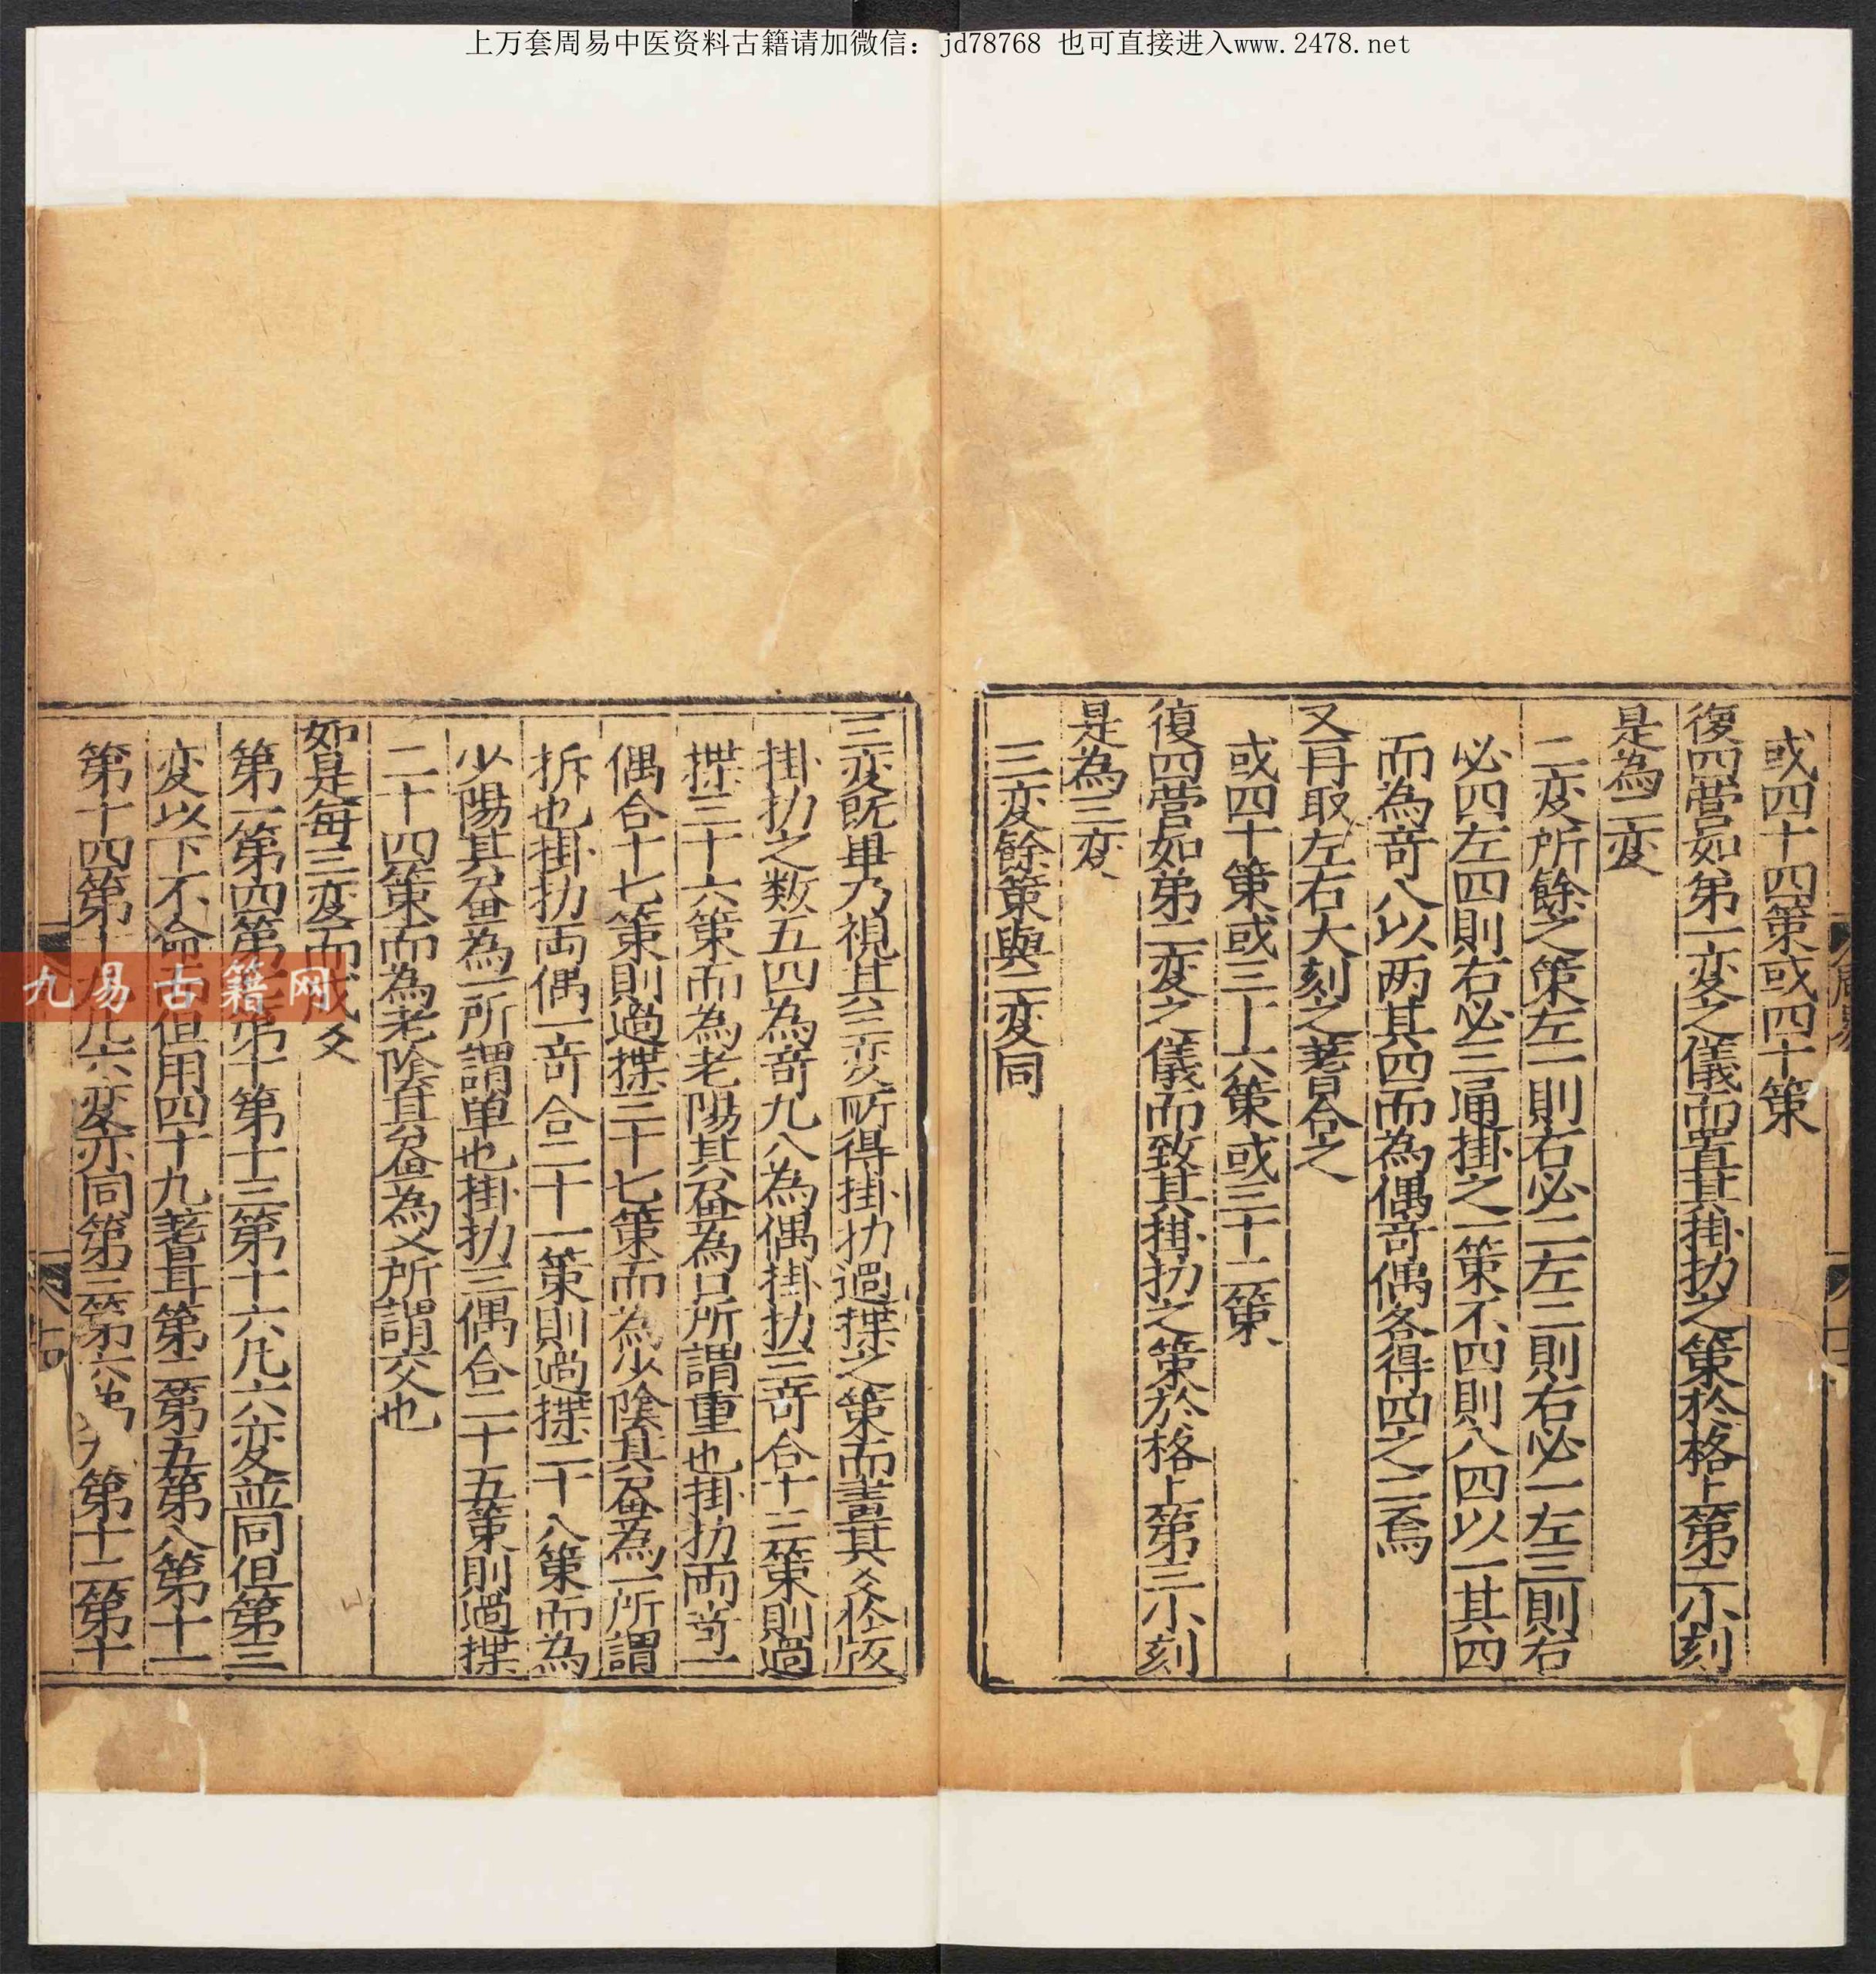 上万套周易中医资料古籍请加微信：jd78768 也可直接进入www.2478.net
或四十四策或四十策
復四營如第一变之儀而置其掛扐之策於格上第二小刻
是為二变
二变所餘之策左一則右必二左二則右必一左三則右
必四左四則右必三通掛之一策不四則八四以一其四
而為奇八以两其四而為偶奇偶各得四之二焉
又再取左右大刻之蓍合之
或四十策或三十六策或三十二策
復四營如第二变之儀而致其掛扐之策於格上第三小刻
是為三变
三变餘策與二变同
三变既畢乃視其三变所得掛扐過揲之策而畫其爻於版
掛扐之数五四為奇九八為偶掛扐三奇合十三策則過
揲三十六策而為老陽其畫為口所謂重也掛扐两奇一
偶合十七策則過揲三十七策而為少陰其畫為一所謂
拆也掛扐两偶一奇合二十一策則過揲二十八策而為
少陽其畫為一所謂单也掛扐三偶合二十五策則過揲
二十四策而為老陰其畫為乂所謂交也
如是每三变而成爻
第一第四第第十第十三第十六凡六变並同但第三
变以下不命但用四十九蓍耳第二第五第八第十一
第十四第十凡六变亦同第三第六第九第十二第十
九易古籍网